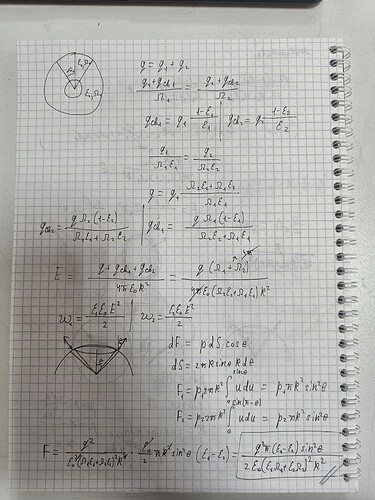 Ω₁ E₁, Ω₂
q = q₁ + q₂
(q₁ + q_cb1)/Ω₁ = (q₂ + q_cb2)/Ω₂
q_cb1 = q₁ (1-ε₁)/ε₁ | q_cb2 = q₂ (1-ε₂)/ε₂
q₁/(Ω₁ε₁) = q₂/(Ω₂ε₂)
q = q₁ (Ω₂ε₂ + Ω₁ε₁)/(Ω₁ε₁)
q_cb2 = q Ω₂(1-ε₂)/(Ω₁ε₁ + Ω₂ε₂) | q_cb1 = q Ω₁(1-ε₁)/(Ω₂ε₂ + Ω₁ε₁)
E = (q + q_cb1 + q_cb2)/(4πε₀R²) = q(Ω₁ + Ω₂)/(4πε₀(Ω₂ε₂ + Ω₁ε₁)R²)
w₁ = ε₁ε₀E²/2 | w₂ = ε₂ε₀E²/2
dF = p dS cosθ
dS = 2πR sinθ R dθ
F₁ = p₁2πR² ∫₀^{sinθ} u du = p₁πR² sin²θ
F₂ = p₂2πR² ∫₀^{sin(π-θ)} u du = p₂πR² sin²θ
F = q²/(ε₀²(Ω₁ε₁ + Ω₂ε₂)²R⁴) · ε₀/2 πR² sin²θ (ε₁-ε₂) = q²π(ε₁-ε₂)sin²θ/(2ε₀(ε₁Ω₁ + ε₂Ω₂)²R²)